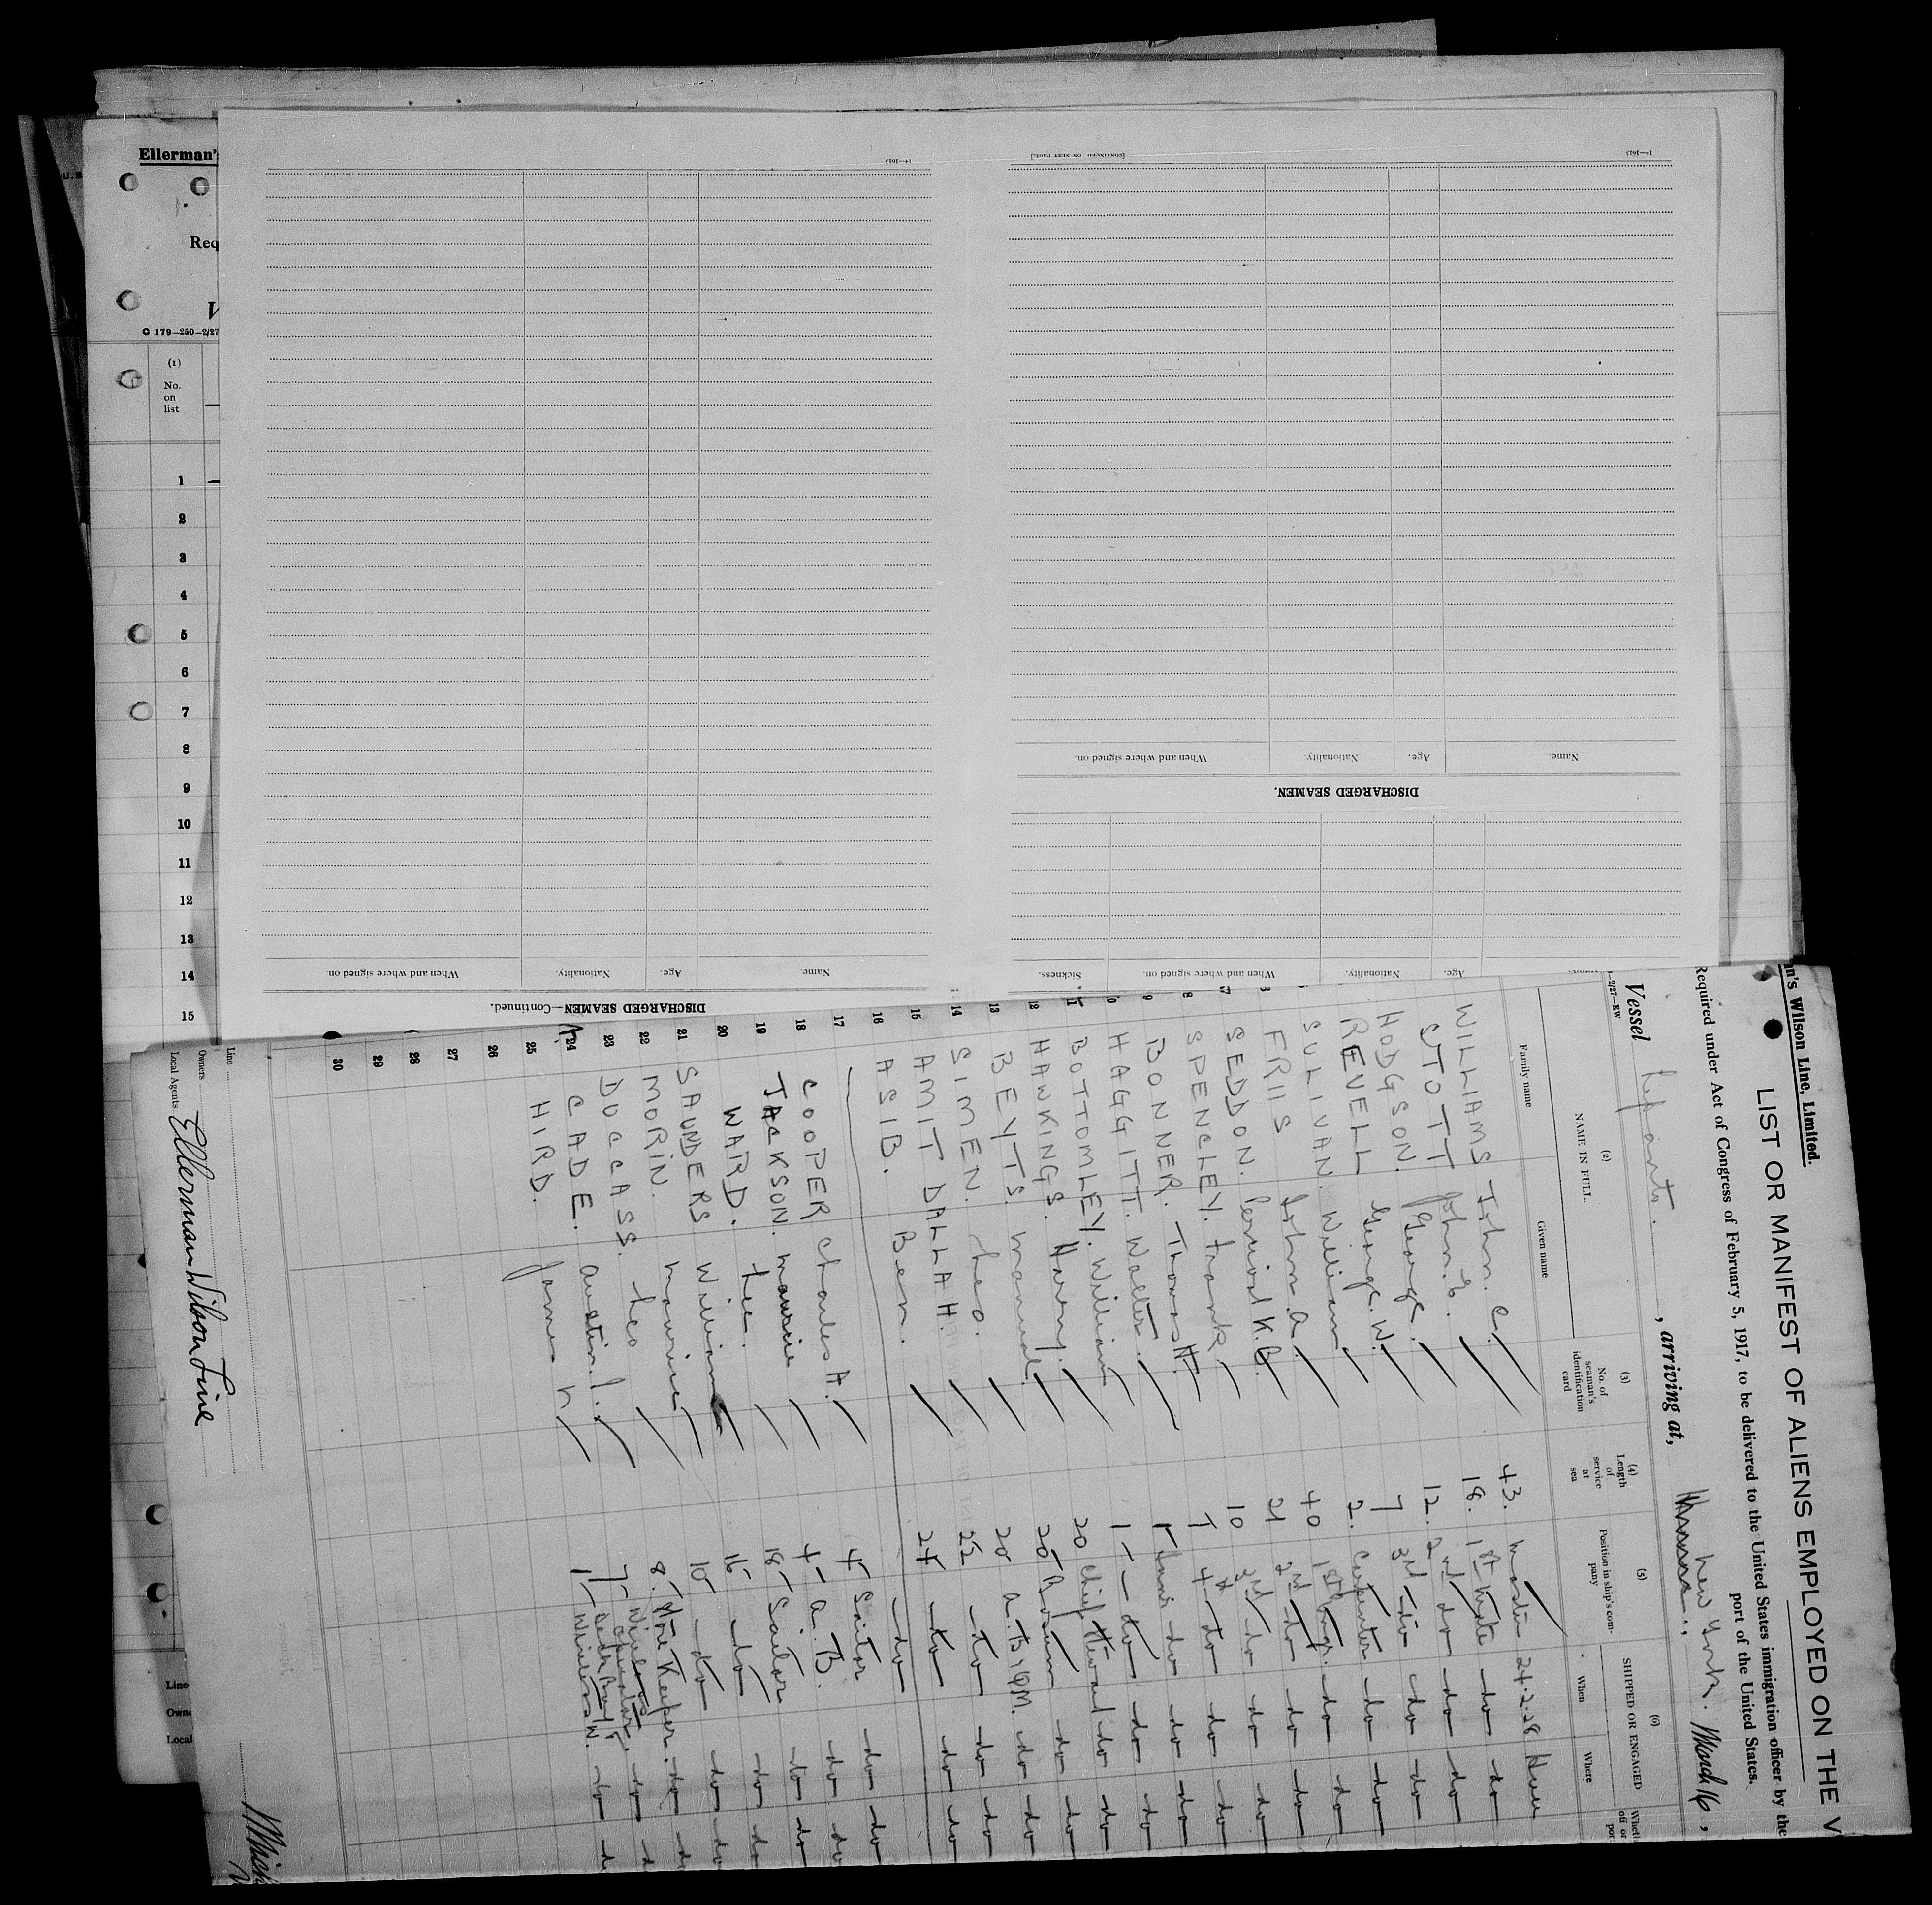 Ellerman's
Req
V
C 179—250—2/27
(1)
No.
on
list
1
2
3
4
5
6
7
8
9
10
11
12
13
14
15
14—1615
[CONTINUED ON NEXT PAGE.]
14—1615
Name. Age. Nationality. When and where signed on.
DISCHARGED SEAMEN.
Age. Nationality. When and where signed on. Sickness.
Name. Age. Nationality. When and where signed on.
DISCHARGED SEAMEN—Continued.
an's Wilson Line, Limited.
LIST OR MANIFEST OF ALIENS EMPLOYED ON THE V
Required under Act of Congress of February 5, 1917, to be delivered to the United States immigration officer by the
port of the United States.
—2/27—EW
Vessel Lepanto. , arriving at, New York. March 16,
(2) (3) (4) (5) (6)
NAME IN FULL. No. of seaman's identification card Length of service at sea Position in ship's company SHIPPED OR ENGAGED
Family name Given name When Where
WILLIAMS John. C. 43. Master 24.2.28 Hull
STOTT John. E. 18. 1st Mate do do
HODGSON. George. 12. 2nd do do do
REVELL George. W. 7 3rd do do do
SULIVAN. William 2. Carpenter do do
FRIIS John. A. 40 1st Engr. do do
SEDDON. Percival K. G. 21 2nd do do do
SPENCLEY. Frank. 10 3rd do do do
BONNER. Thomas H. 7 4th do do do
HAGGITT. Walter. do do do
BOTTOMLEY. William 1 do do do
HAWKINGS. Harry. 20 Chief Steward do do
BEYTS. Manuel. 20 Bosun do do
SIMEN. Leo. 20 A.B. & QM. do do
AMIT DALLAH. 22 do do do
ASIB. Ben. 24 do do do
COOPER Charles A. 4 Sailor do do
JACKSON. Maurice 4 A.B. do do
WARD. Lee. 18 Sailor do do
SAUNDERS William 16 do do do
MORIN. Maurice 10 do do
DUCCASS. Leo 8. Store Keeper. do
CADE. Austin. 7 Wireless Operator. do
HIRD. James 1
8
9
10
11
12
13
14
15
16
17
18
19
20
21
22
23
24
25
26
27
28
29
30
Line
Owners
Local Agents Ellerman Wilson Line
Line
Owne
Local